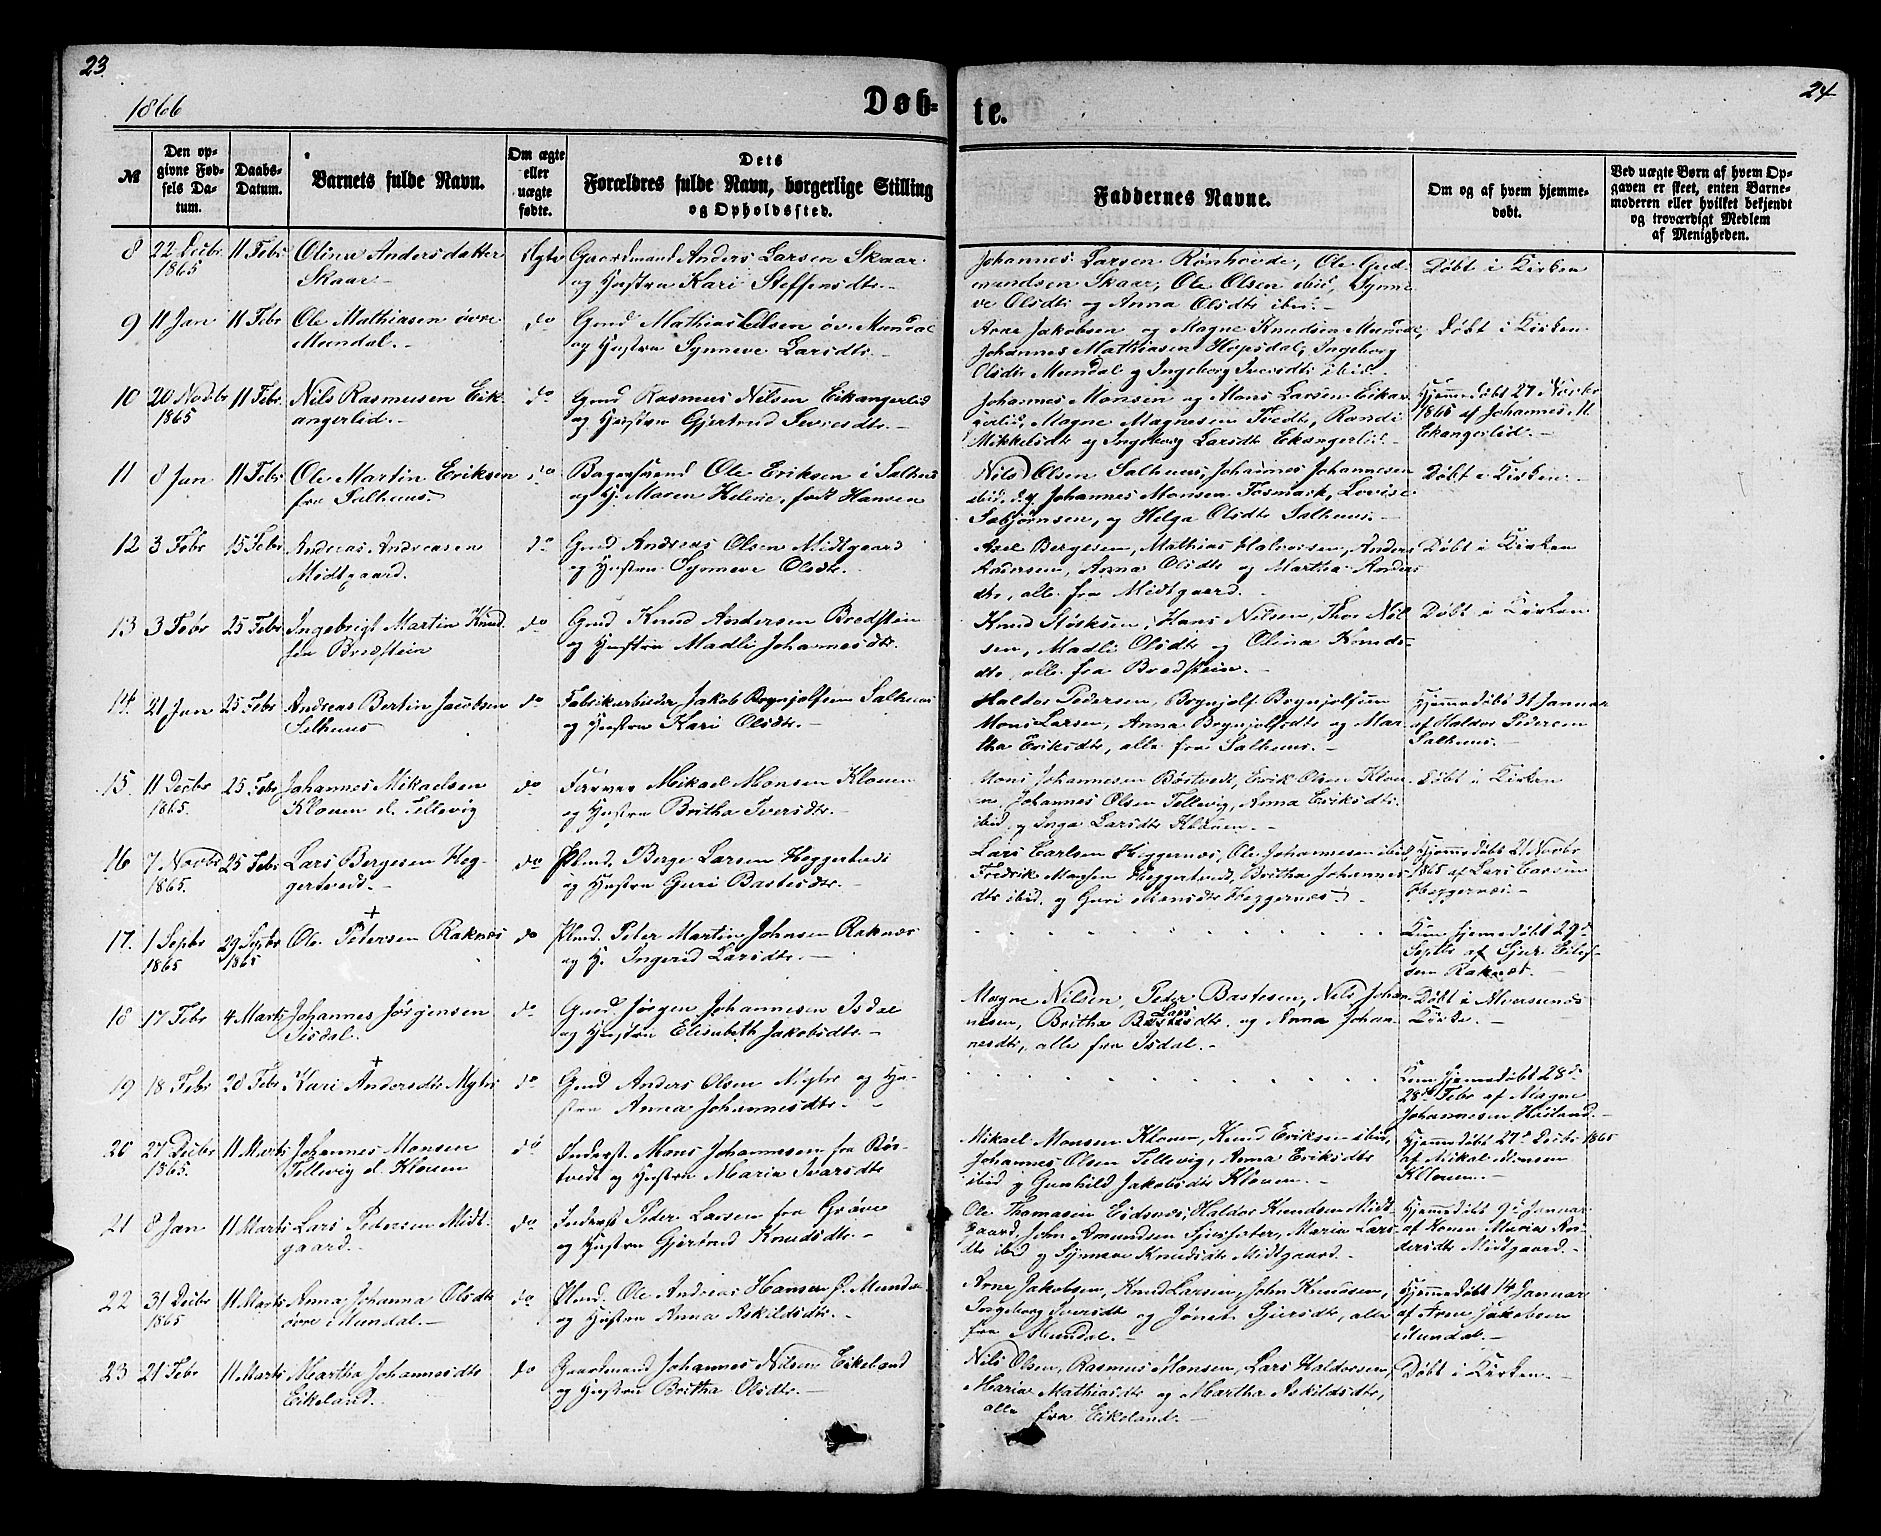 23.
24
1866
Døb-
te.
№
Den op-
givne Fød-
sels Da-
tum.
Daabs-
Datum.
Barnets fulde Navn.
Om ægte
eller
uægte
fødte.
Dets
Forældres fulde Navn, borgerlige Stilling
og Opholdssted.
Faddernes Navne.
Om og af hvem hjemme-
døbt.
Ved uægte Børn af hvem Op-
gaven er skeet, enten Barne-
moderen eller hvilket bekjendt
og troværdigt Medlem
af Menigheden.
8 22 Decbr 11 Febr Olina Andersdatter Ægte Gaardmand Anders Larsen Skaar Johannes Larsen Rønhovde, Ole Gud- Døbt i Kirken
1865 Skaar og Hustru Kari Steffensdtr. mundsen Skaar, Ole Olsen ibid, Synne-
ve Olsdtr og Anna Olsdtr ibid.
9 11 Jan 11 Febr Ole Mathiasen øvre do Gmd Mathias Olsen øv. Mundal Arne Jakobsen og Magne Knudsen Mundal, Døbt i Kirken
Mundal. og Hustru Synneve Larsdtr. Johannes Mathiasen Hopsdal, Ingeborg
Olsdtr Mundal og Ingeborg Iversdtr ibid.
10 20 Novbr 11 Febr. Nils Rasmusen Eik- do Gmd Rasmus Nilsen Eikangerlid Johannes Monsen og Mons Larsen Eikan- Hjemmedøbt 27 Novbr
1865 angerlid. og Hustru Gjertrud Iversdtr. gerlid, Magne Magnesen Tvedt, Randi 1865 af Johannes M.
Mikkelsdtr og Ingeborg Larsdtr Ekangerlid. Ekangerlid.
11 8 Jan 11 Febr Ole Martin Eriksen do Bagersvend Ole Eriksen i Salhus Nils Olsen Salhuus, Johannes Johannesen Døbt i Kirken.
fra Salhuus. og H. Maren Helene, født Hansen ibid, Johannes Monsen Tosmark, Lovise
og Helga Olsdtr Salhuus.
12 3 Febr 15 Febr Andreas Andreasen do Gmd Andreas Olsen Midtgaard Axel Bergesen, Mathias Halvorsen, Anders Døbt i Kirken
Midtgaard. og Hustru Synneve Olsdtr. Andersen, Anna Olsdtr og Martha Anders
dtr, alle fra Midtgaard.
13 3 Febr 25 Febr Ingebrigt Martin Knud- do Gmd Knud Andersen Bredstein Knud Hans Nilsen, Thor Nil- Døbt i Kirken
sen Bredstein og Hustru Madli Johannesdtr. sen, Madli Olsdtr og Olina Knuds-
dtr, alle fra Bredstein.
14. 21 Jan 25 Febr Andreas Bertin Jacobsen do Fabrikarbeider Jakob Brynjolfsen Salhuus Haldor Pedersen, Brynjolf Brynjolfsen Hjemmedøbt 31 Januar
Salhuus og Hustru Kari Olsdtr. Mons Larsen, Anna Brynjolfsdtr og Mar- af Haldor Pedersen
tha Eriksdtr, alle fra Salhuus. Salhuus.
15. 11 Decbr 25 Febr Johannes Mikaelsen do Farver Mikael Monsen Klouen Mons Johannesen Børtvedt, Erik Olsen Klou- Døbt i Kirken
1865. Klouen el. Tellevig og Hustru Britha Iversdtr. en, Johannes Olsen Tellevig, Anna Eriksdtr
ibid og Inga Larsdtr Klouen.
16 7 Novbr 25 Febr Lars Bergesen Heg- do Plmd. Berge Larsen Heggertveds Lars Carlsen Heggernæs, Ole Johannesen ibid, Hjemmedøbt 21 Novbr
1865. gertved. og Hustru Guri Bastesdtr. Fredrik Monsen Heggertvedt, Britha Johannes- 1865 af Lars Carlsen
dtr ibid og Guri Monsdtr Heggernæs. Heggernæs.
17. 1 Septbr 29 Septbr Ole + Petersen Raknæs do Plmd. Peter Martin Johnsen Raknæs Kun hjemmedøbt 29
1865 1865 og H. Ingerid Larsdtr. Septbr af Sjur Eilef-
sen Raknæs.
18 17 Febr 4 Marts Johannes Jørgensen do Gmd. Jørgen Johannesen Isdal Magne Nilsen, Peder Bastesen, Nils Johan- Døbt i Alversunds
Isdal. og Hustru Elisabeth Jakobsdtr. nesen, Britha Larsdtr, og Anna Johan- Kirke.
nesdtr, alle fra Isdal.
19 18 Febr 28 Febr Kari + Andersdtr Mgter do Gmd Anders Olsen Mgter og Hu- Kun hjemmedøbt 28
stru Anna Johannesdtr. 28de Febr af Magne
Johannesen Høiland.
20 27 Decbr 11 Marts Johannes Monsen do Inderst. Mons Johannesen fra Bør- Mikael Monsen Klouen, Knud Eriksen ibid, Hjemmedøbt 27 Decbr 1865
1865. Tellevig el. Klouen tvedt og Hustru Maria Ivarsdtr Johannes Olsen Tellevig, Anna Eriksdtr af Mikal Monsen
ibid og Gunhild Jakobsdtr Klouen. Klouen.
21 8 Jan 11 Marts Lars Pedersen Midt- do Inderst Peder Larsen fra Grøvne Ole Thomasen Eidsnæs, Haldor Knudsen Midt- Hjemmedøbt 9 Januar
gaard. og Hustru Gjertrud Knudsdtr. gaard, John Amundsen Maria Lars- af Konen Maries An-
dtr ibid og Synneve Knudsdtr Midtgaard. dersdtr Midtgaard.
22 31 Decbr 11 Marts Anna Johanna Olsdtr do Plmd. Ole Andreas Hansen Ø. Mundal Arne Jakobsen, Knud Larsen, John Knudsen, Hjemmedøbt 14 Januar
1865 øvre Mundal. og Hustru Anna Askildsdtr. Ingeborg Iversdtr og Jønet Sjursdtr, alle af Arne Jakobsen
fra Mundal. Mundal.
23 21 Febr 11 Marts Martha Johannesdtr do Gaardmand Johannes Nilsen Eikeland Nils Olsen, Rasmus Monsen, Lars Haldorsen, Døbt i Kirken.
Eikeland. og Hustru Britha Olsdtr. Maria Mathiasdtr og Martha Askildsdtr,
alle fra Eikeland.